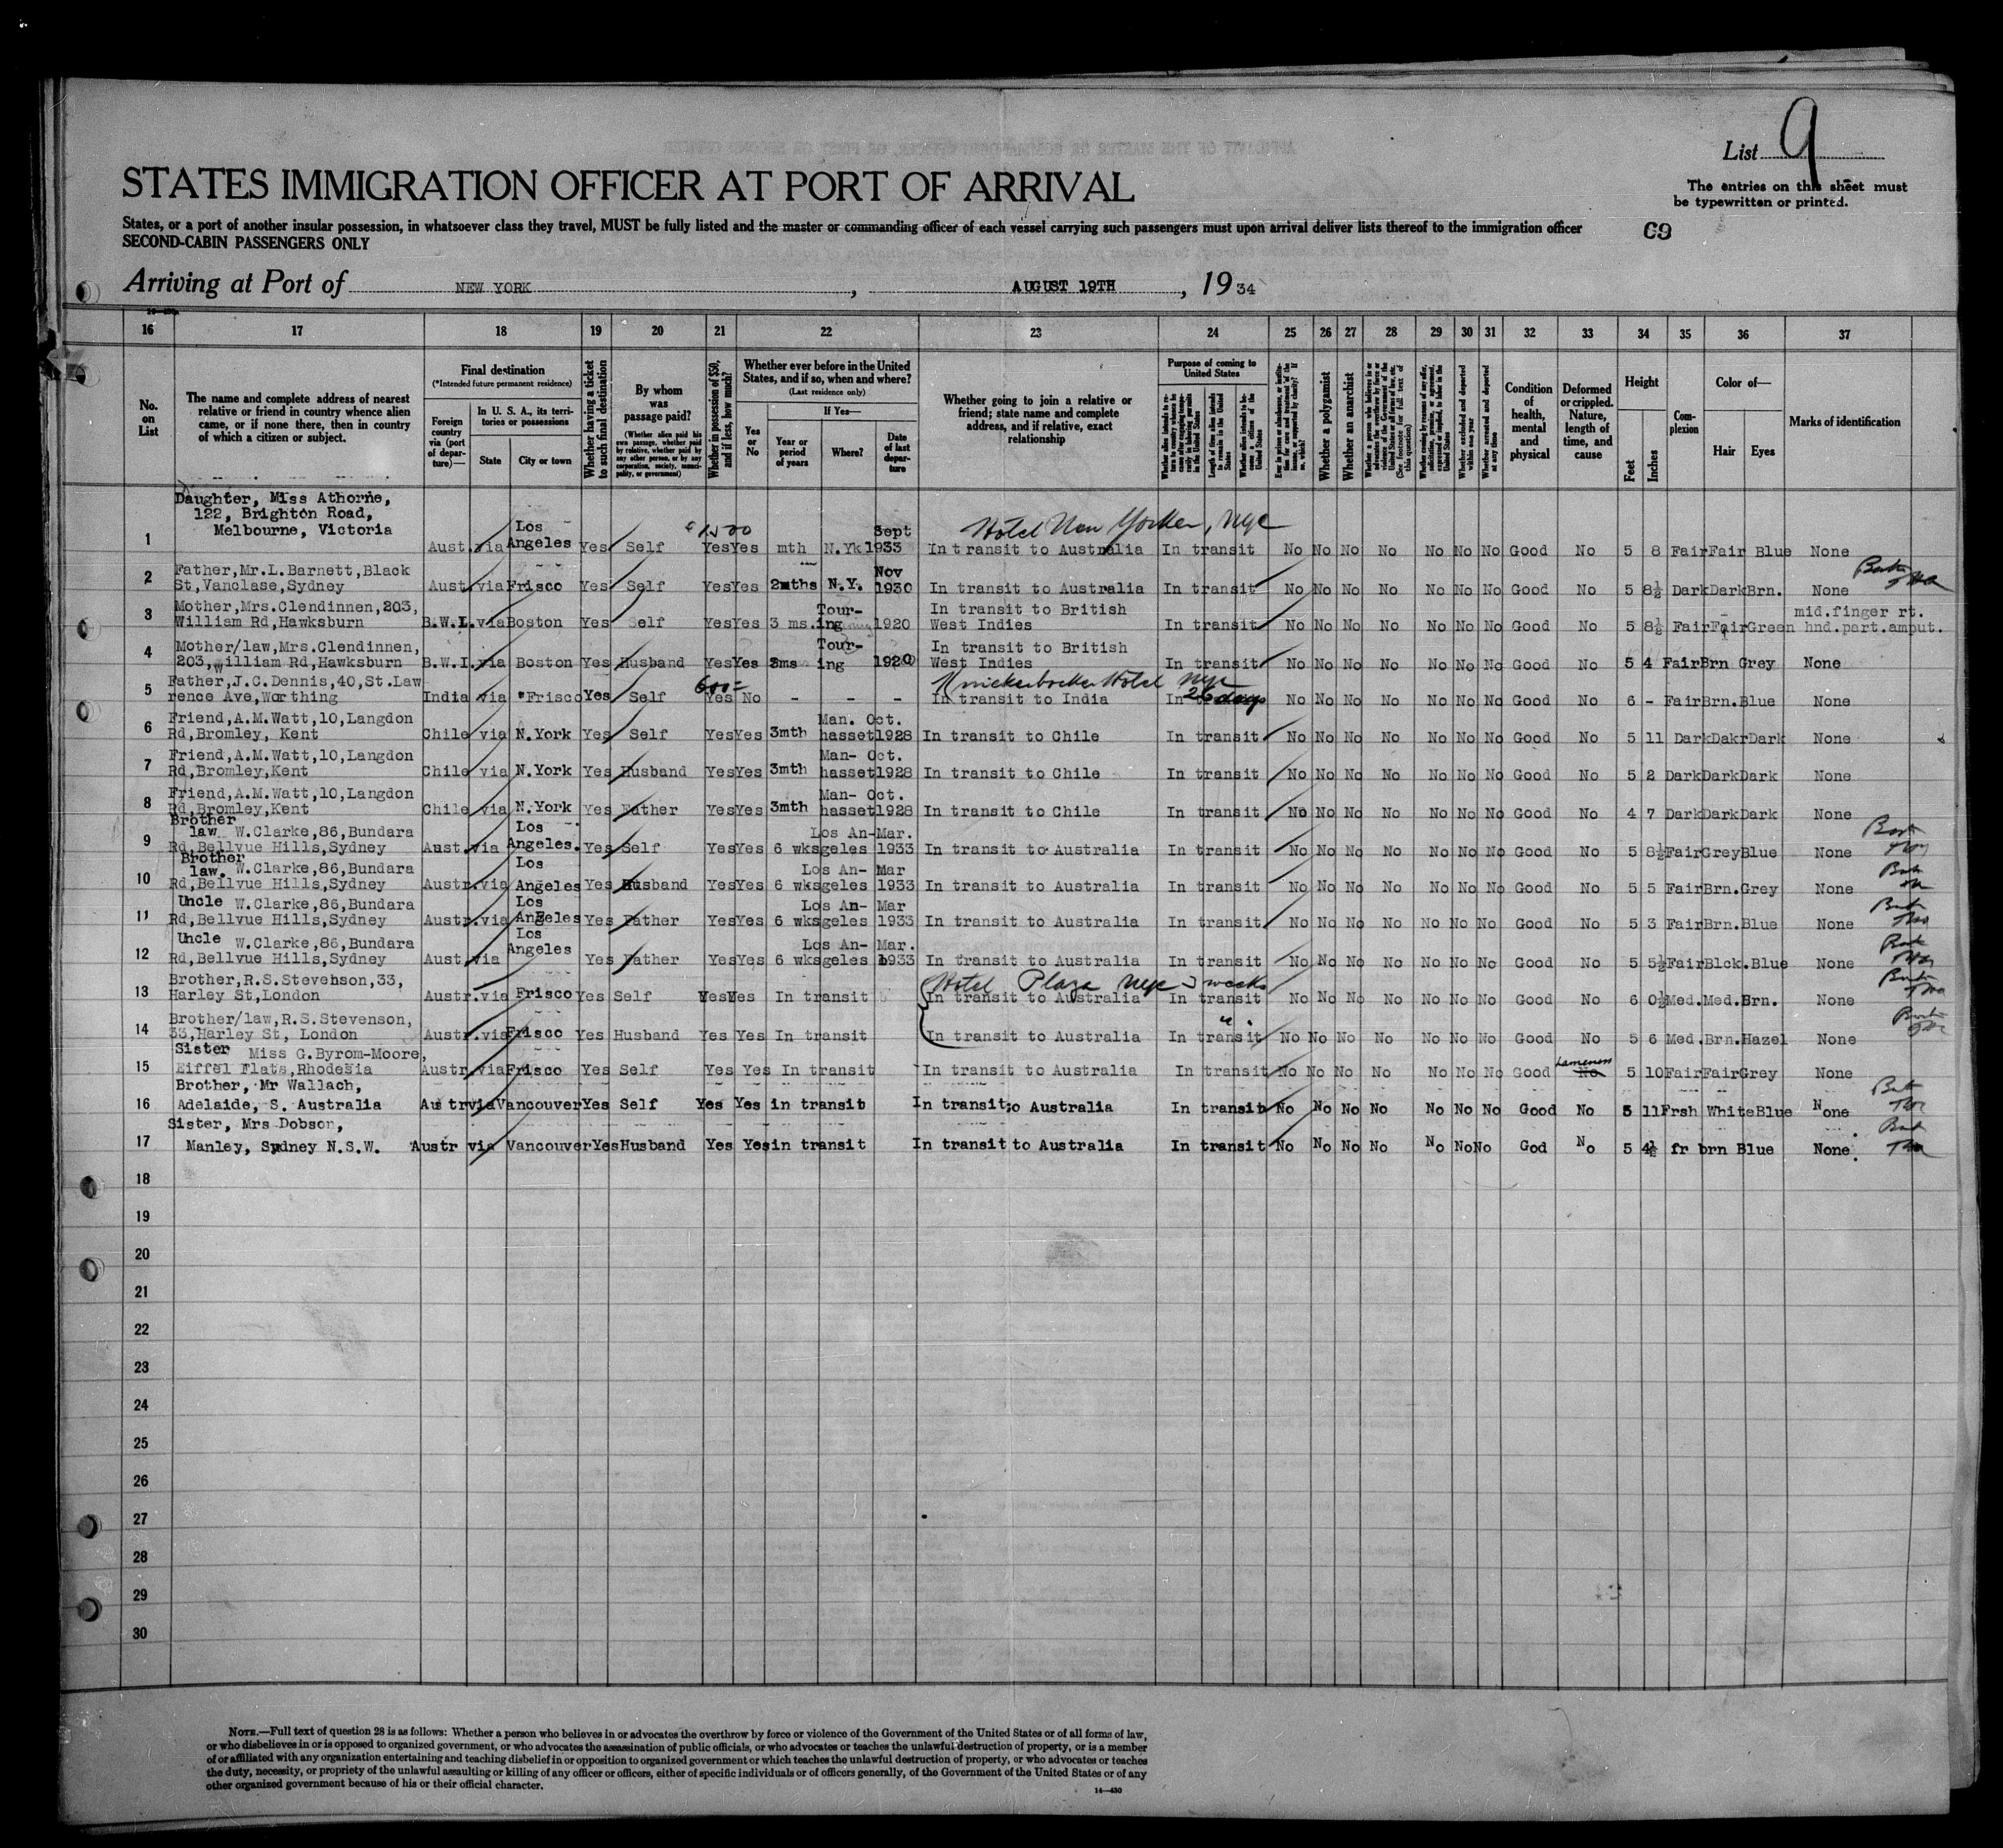 List 9
STATES IMMIGRATION OFFICER AT PORT OF ARRIVAL
The entries on this sheet must
be typewritten or printed.
States, or a port of another insular possession, in whatsoever class they travel, MUST be fully listed and the master or commanding officer of each vessel carrying such passengers must upon arrival deliver lists thereof to the immigration officer
SECOND-CABIN PASSENGERS ONLY
69
Arriving at Port of NEW YORK, AUGUST 19TH, 1934
16 17 18 19 20 21 22 23 24 25 26 27 28 29 30 31 32 33 34 35 36 37
No. on List
The name and complete address of nearest relative or friend in country whence alien came, or if none there, then in country of which a citizen or subject.
Final destination
(*Intended future permanent residence)
Foreign country via (port of departure)—
In U. S. A., its territories or possessions
State
City or town
Whether having a ticket to such final destination
By whom was passage paid?
(Whether alien paid his own passage, whether paid by relative, whether paid by any other person, or by any corporation, society, municipality, or government)
Whether in possession of $50, and if less, how much?
Whether ever before in the United States, and if so, when and where?
(Last residence only)
Yes or No
If Yes—
Year or period of years
Where?
Date of last departure
Whether going to join a relative or friend; state name and complete address, and if relative, exact relationship
Purpose of coming to United States
Length of time alien intends to remain in the United States
Whether alien intends to become a citizen of the United States
Whether a polygamist
Whether an anarchist
(See footnote for full text of this question)
Whether excluded and deported within one year
Whether arrested and deported at any time
Condition of health, mental and physical
Deformed or crippled. Nature, length of time, and cause
Height
Feet
Inches
Complexion
Color of—
Hair
Eyes
Marks of identification
Daughter, Miss Athorne,
122, Brighton Road,
Melbourne, Victoria
1 Aust.via Los Angeles Yes Self $1500 Yes Yes mth N.Yk Sept 1933 Hotel New Yorker, NYC In transit to Australia In transit No No No No No No No Good No 5 8 Fair Fair Blue None
Father,Mr.L.Barnett,Black
2 St,Vanclase,Sydney Aust.via Frisco Yes Self Yes Yes 2mths N.Y. Nov 1930 In transit to Australia In transit No No No No No No No Good No 5 8½ Dark Dark Brn. None
Mother,Mrs.Clendinnen,203,
3 William Rd,Hawksburn B.W.I.via Boston Yes Self Yes Yes 3 ms. Tour-ing 1920 In transit to British West Indies In transit No No No No No No No Good No 5 8½ Fair Fair Green mid.finger rt. hnd.part.amput.
Mother/law,Mrs.Clendinnen,
4 203,William Rd,Hawksburn B.W.I.via Boston Yes Husband Yes Yes 3ms Tour-ing 1920 In transit to British West Indies In transit No No No No No No No Good No 5 4 Fair Brn Grey None
Father,J.C.Dennis,40,St.Law
5 rence Ave,Worthing India via 'Frisco Yes Self 600= Yes No - - - Knickerbocker Hotel NYC In transit to India In 26 days No No No No No No No Good No 6 - Fair Brn. Blue None
Friend,A.M.Watt,10,Langdon
6 Rd,Bromley, Kent Chile via N.York Yes Self Yes Yes 3mth Man.hasset Oct. 1928 In transit to Chile In transit No No No No No No No Good No 5 11 Dark Dakr Dark None
Friend,A.M.Watt,10,Langdon
7 Rd,Bromley,Kent Chile via N.York Yes Husband Yes Yes 3mth Man-hasset Oct. 1928 In transit to Chile In transit No No No No No No No Good No 5 2 Dark Dark Dark None
Friend,A.M.Watt,10,Langdon
8 Rd,Bromley,Kent Chile via N.York Yes Father Yes Yes 3mth Man-hasset Oct. 1928 In transit to Chile In transit No No No No No No No Good No 4 7 Dark Dark Dark None
Brother law W.Clarke,86,Bundara
9 Rd,Bellvue Hills,Sydney Aust.via Los Angeles. Yes Self Yes Yes 6 wks Los An-geles Mar. 1933 In transit to Australia In transit No No No No No No No Good No 5 8½ Fair Grey Blue None
Brother law. W.Clarke,86,Bundara
10 Rd,Bellvue Hills,Sydney Austr.via Los Angeles Yes Husband Yes Yes 6 wks Los An-geles Mar 1933 In transit to Australia In transit No No No No No No No Good No 5 5 Fair Brn. Grey None
Uncle W.Clarke,86,Bundara
11 Rd,Bellvue Hills,Sydney Austr.via Los AngEles Yes Father Yes Yes 6 wks Los An-geles Mar 1933 In transit to Australia In transit No No No No No No No Good No 5 3 Fair Brn. Blue None
Uncle W.Clarke,86,Bundara
12 Rd,Bellvue Hills,Sydney Aust.via Los Angeles Yes Father Yes Yes 6 wks Los An-geles Mar. 1933 In transit to Australia In transit No No No No No No No Good No 5 5½ Fair Blck. Blue None
Brother,R.S.Stevehson,33,
13 Harley St,London Austr.via Frisco Yes Self Yes Yes In transit Hotel Plaza NYC 3 weeks In transit to Australia In transit No No No No No No No Good No 6 0½ Med. Med. Brn. None
Brother/law,R.S.Stevenson,
14 33,Harley St, London Austr.via Frisco Yes Husband Yes Yes In transit In transit to Australia In transit No No No No No No No Good No 5 6 Med. Brn. Hazel None
Sister Miss G.Byrom-Moore,
15 Eiffel Flats,Rhodesia Austr.via Frisco Yes Self Yes Yes In transit In transit to Australia In transit No No No No No No No Good Lameness No 5 10 Fair Fair Grey None
Brother, Mr Wallach,
16 Adelaide, S. Australia Austr via Vancouver Yes Self Yes Yes in transit In transit to Australia In transit No No No No No No No Good No 5 11 Frsh White Blue None
Sister, Mrs Dobson,
17 Manley, Sydney N.S.W. Austr via Vancouver Yes Husband Yes Yes in transit In transit to Australia In transit No No No No No No No God No 5 4½ fr brn Blue None.
18
19
20
21
22
23
24
25
26
27
28
29
30
NOTE.—Full text of question 28 is as follows: Whether a person who believes in or advocates the overthrow by force or violence of the Government of the United States or of all forms of law,
or who disbelieves in or is opposed to organized government, or who advocates the assassination of public officials, or who advocates or teaches the unlawful destruction of property, or is a member
of or affiliated with any organization entertaining and teaching disbelief in or opposition to organized government or which teaches the unlawful destruction of property, or who advocates or teaches
the duty, necessity, or propriety of the unlawful assaulting or killing of any officer or officers, either of specific individuals or of officers generally, of the Government of the United States or of any
other organized government because of his or their official character.
14—430